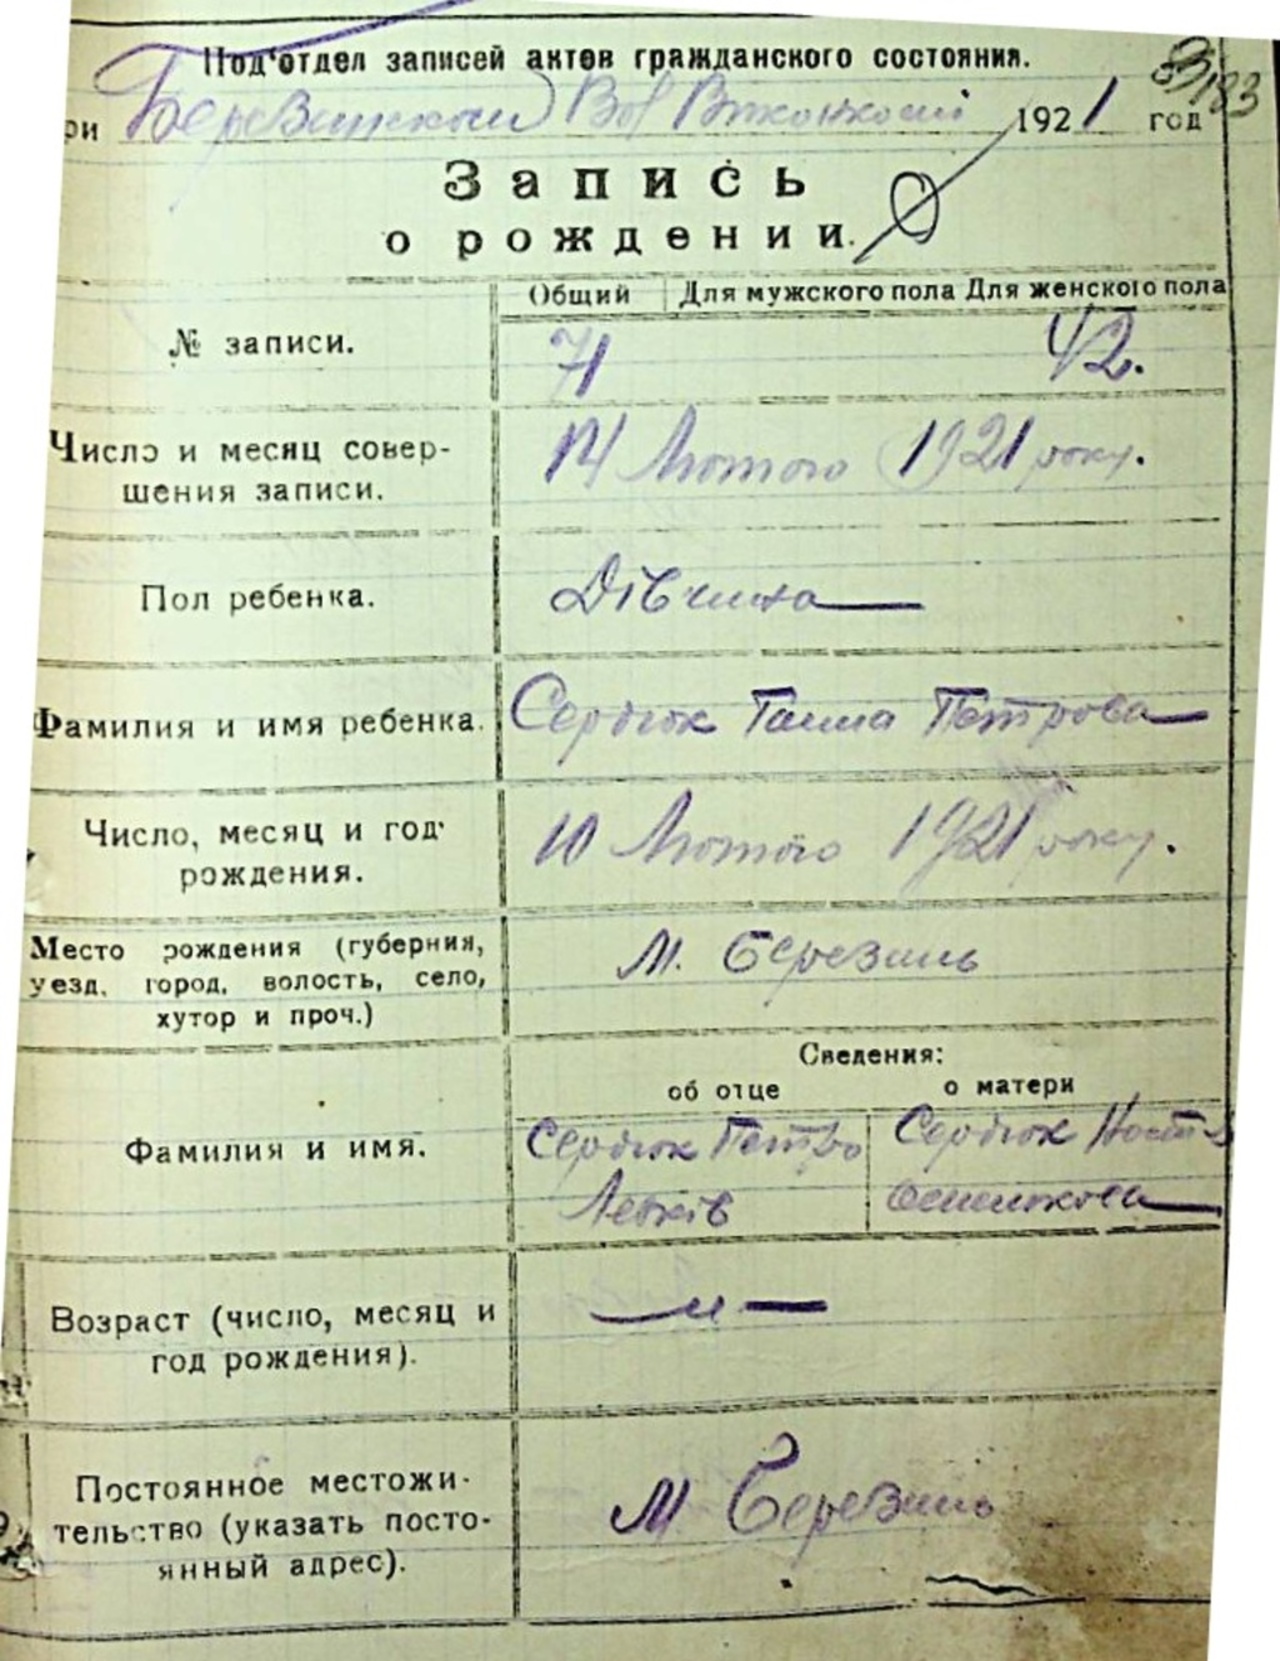 Под'отдел записей актов гражданского состояния.
ри Березинском Вол Виконкомі 1921 год
183
Запись
о рождении.
Общий Для мужского пола Для женского пола
№ записи. 71 42.
Число и месяц совер-
шения записи. 14 Лютого 1921 року.
Пол ребенка. Дівчина
Фамилия и имя ребенка. Сердюк Ганна Петрова
Число, месяц и год
рождения. 10 Лютого 1921 року.
Место рождения (губерния,
уезд, город, волость, село,
хутор и проч.) М. Березинь
Сведения:
об отце о матери
Фамилия и имя. Сердюк Петро Сердюк
Левків
Возраст (число, месяц и
год рождения).
Постоянное местожи-
тельство (указать посто-
янный адрес). М Березинь